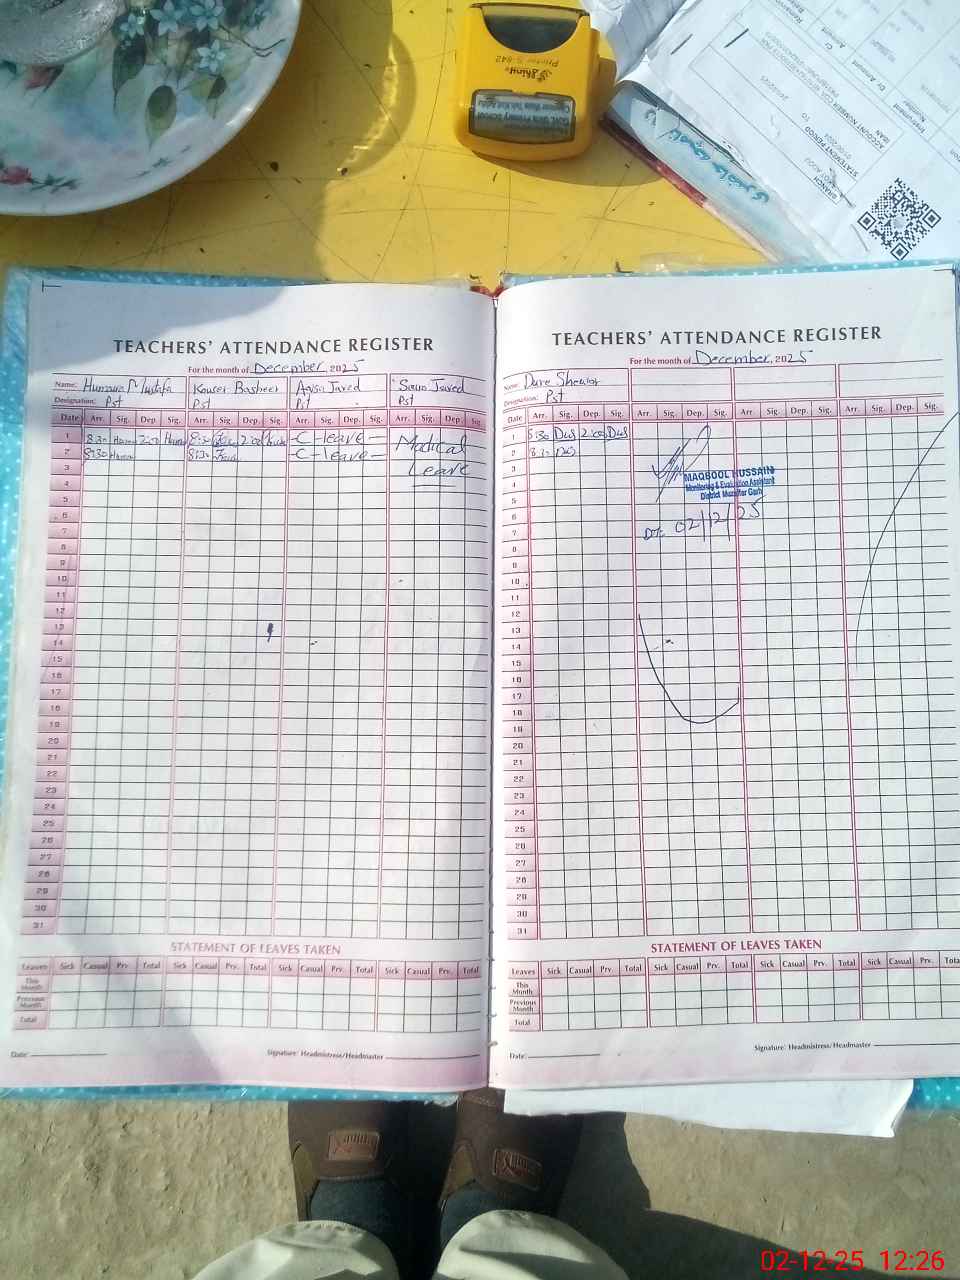 Shiny
Printer S-842
Govt. Girls Primary School
BRANCH
STATEMENT PERIOD
ACCOUNT NUMBER
IBAN
TO
Instrument
Number
Dr
Amount
Cr
Amount
TEACHERS' ATTENDANCE REGISTER
For the month of December, 2025
Name: Humaira Mustafa Kousar Basheer Javed Javed
Designation: Pst Pst Pst Pst
Date Arr. Sig. Dep. Sig. Arr. Sig. Dep. Sig. Arr. Sig. Dep. Sig. Arr. Sig. Dep. Sig.
1 8:30 Hum 2:00 Hum 8:30 2:00 C-leave- Madical
2 8:30 Hum 8:30 -C-leave-
3 Leave
4
5
6
7
8
9
10
11
12
13
14
15
16
17
18
19
20
21
22
23
24
25
26
27
28
29
30
31
STATEMENT OF LEAVES TAKEN
Leaves Sick Casual Prv. Total Sick Casual Prv. Total Sick Casual Prv. Total Sick Casual Prv. Total
This Month
Previous Month
Total
Date: Signature: Headmistress/Headmaster
TEACHERS' ATTENDANCE REGISTER
For the month of December, 2025
Name: Dure
Designation: Pst
Date Arr. Sig. Dep. Sig. Arr. Sig. Dep. Sig. Arr. Sig. Dep. Sig. Arr. Sig. Dep. Sig.
1 8:30 Dus 2:00 Dus
2 8:30 Dus
3
MAQBOOL HUSSAIN
4 Monitoring & Evaluation Assistant
District Muzaffar Garh
5
6
7 DT: 02/12/25
8
9
10
11
12
13
14
15
16
17
18
19
20
21
22
23
24
25
26
27
28
29
30
31
STATEMENT OF LEAVES TAKEN
Leaves Sick Casual Prv. Total Sick Casual Prv. Total Sick Casual Prv. Total Sick Casual Prv. Total
This Month
Previous Month
Total
Date: Signature: Headmistress/Headmaster
02-12-25 12:26